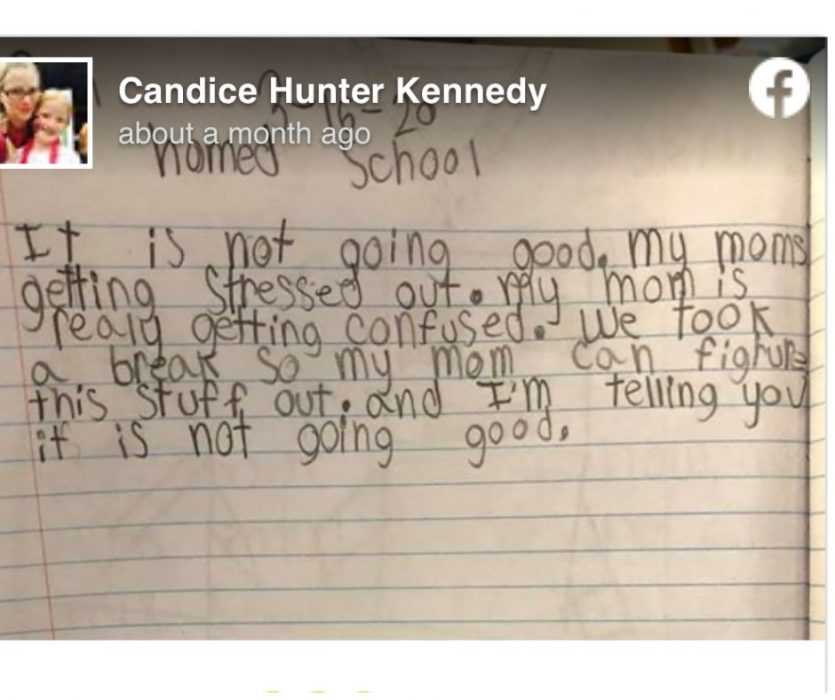 Candice Hunter Kennedy
about a month ago
16-20
homed School
It is not going good. my moms
getting stressed out. My mom is
realy getting confused. We took
a break so my mom can figrure
this stuff out. and I'm telling you
it is not going good.